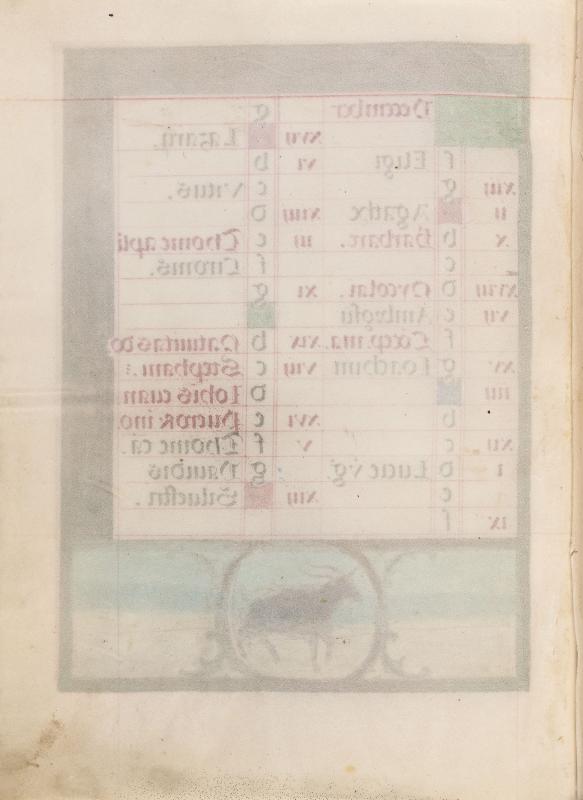 December
f Eligii
xiii g
ii Agathe
x b Barbare.
c
xviii d Nycolai.
vii e Ambrosii
f Cōcep. ma.
xv g Ioachim
iiii
b
xii c
i d Lucie vg.
e
ix f
g
xvii Lazari.
vi b
c
xiiii d
iii e Thome apti
f
xi g
xix b Natiuitas do
viii c Stephani.
d Iohis euan
xvi e Pueror ino.
v f Thome cā.
g Dauidis
xiii Siluestri.